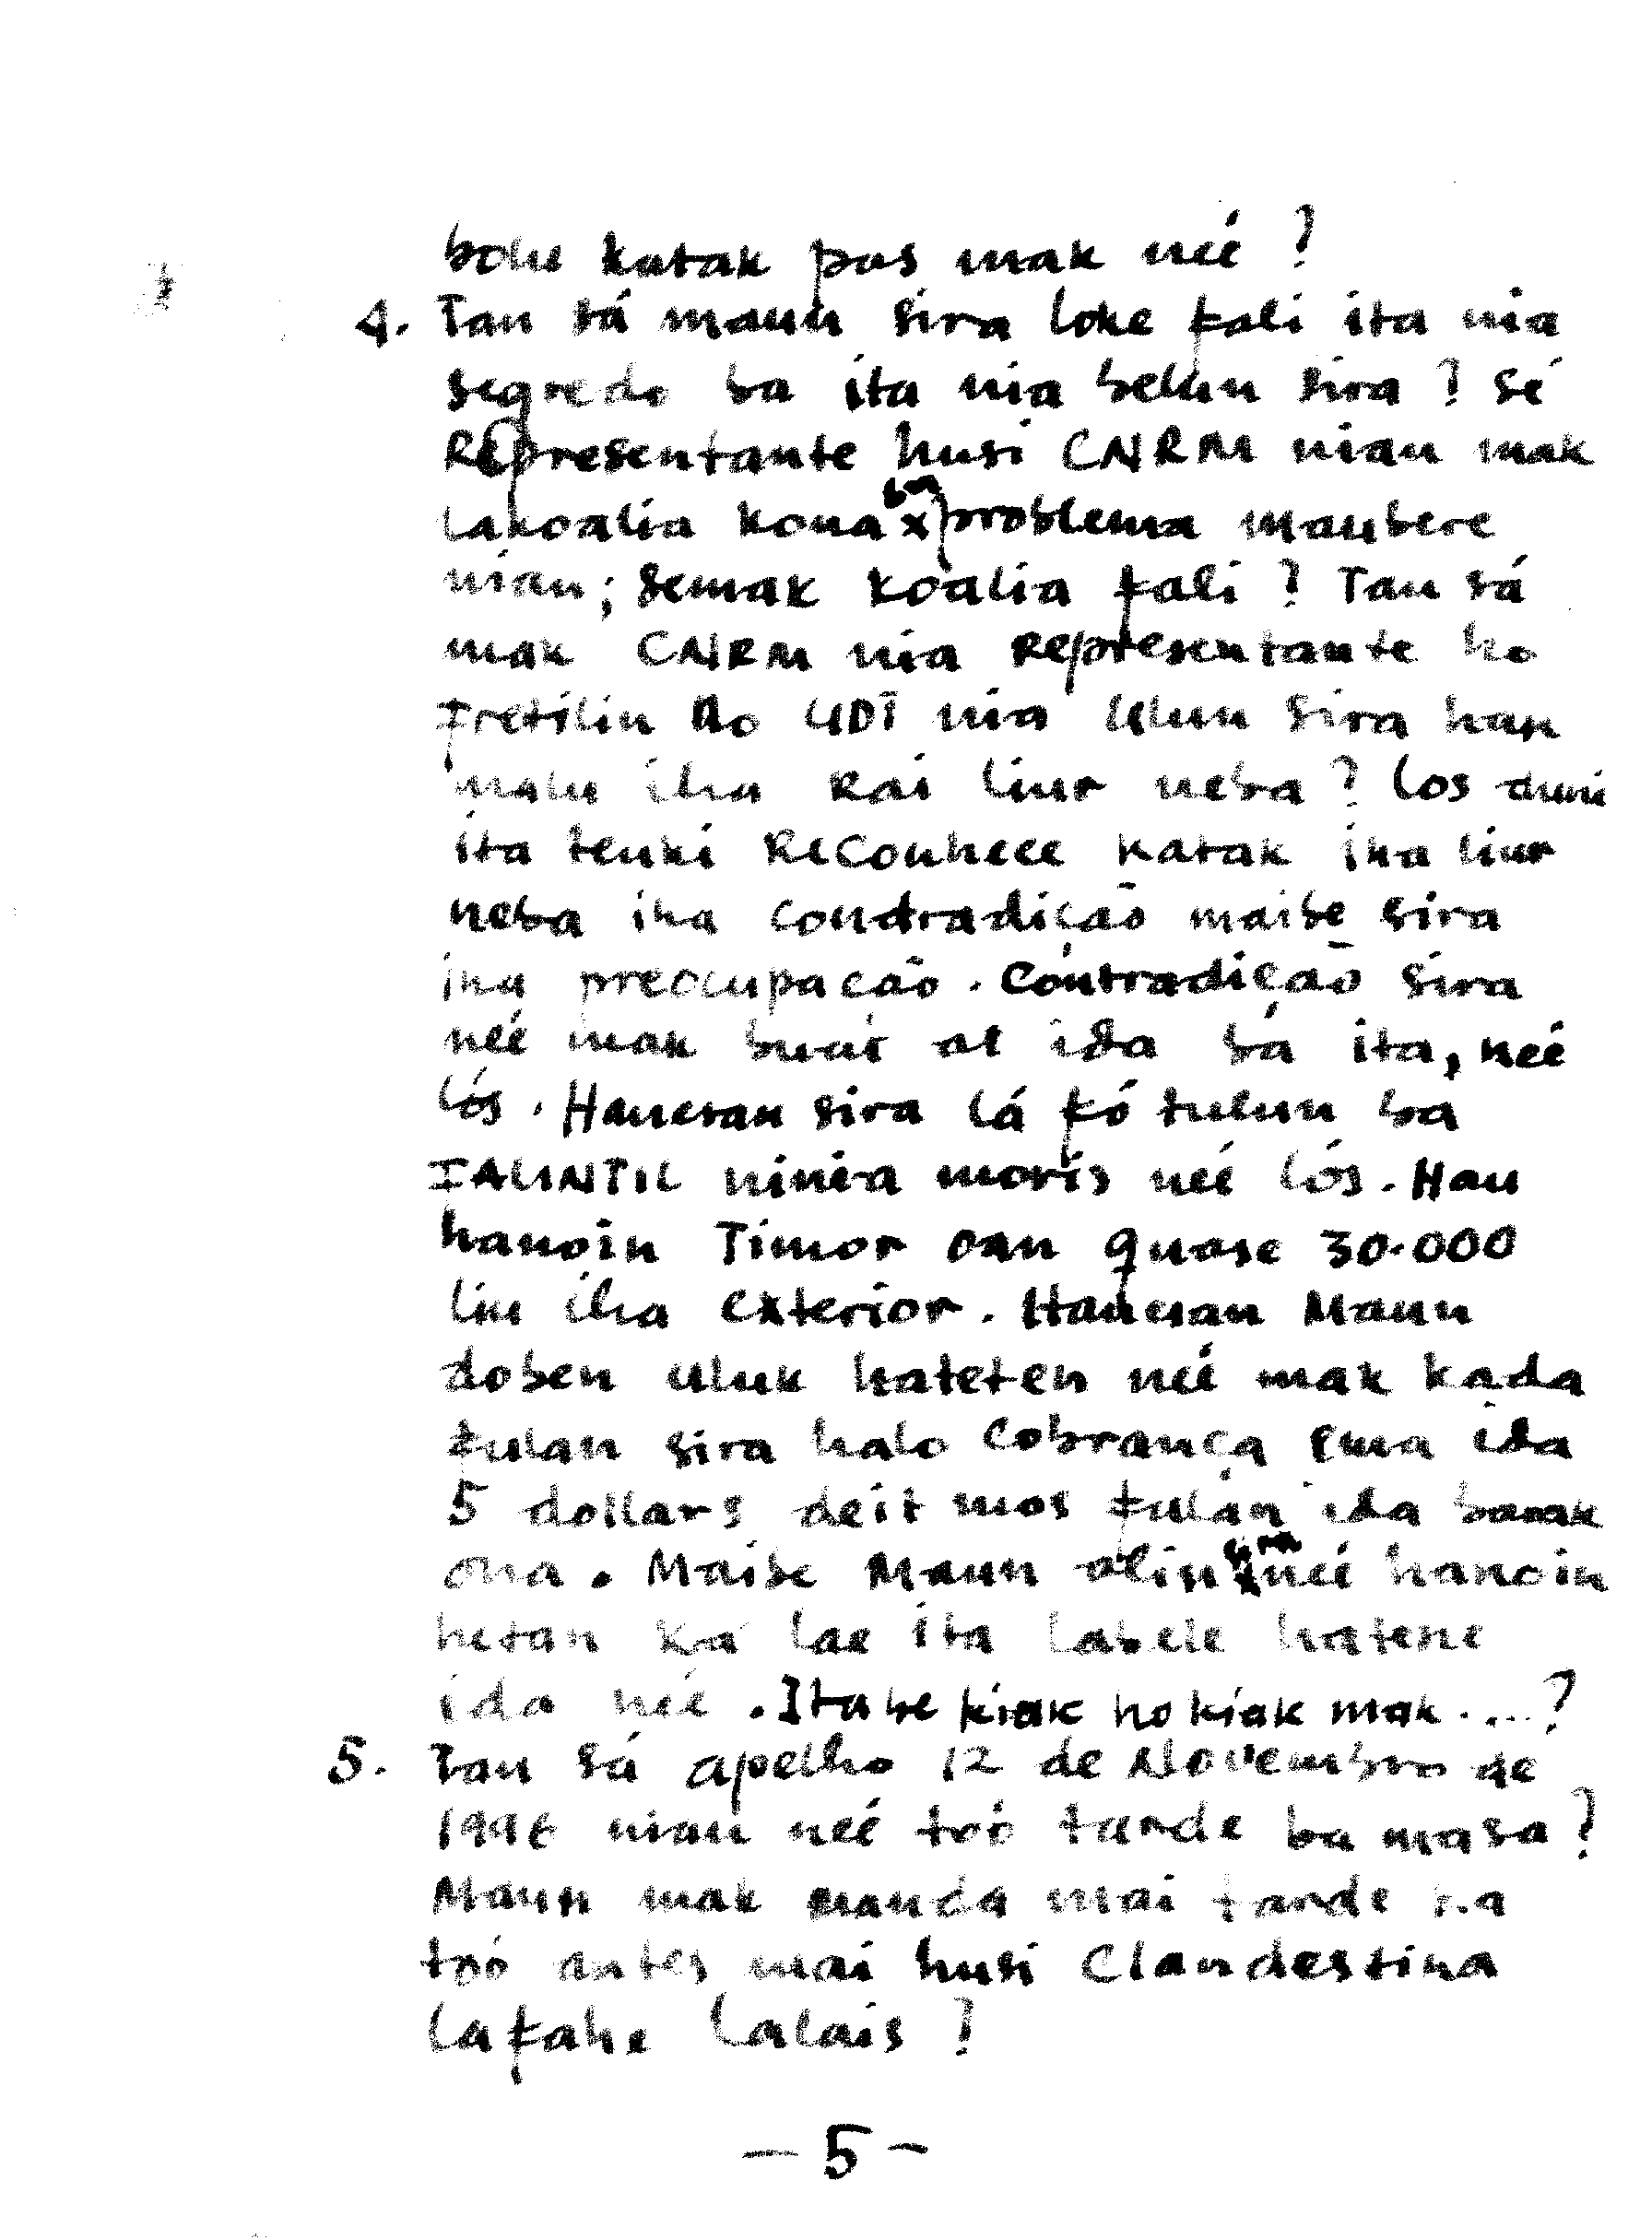 bolu katak pas mak neé ?
4. Tan sá maun sira loke fali ita nia
segredo ba ita nia belun sira ? Sé
Representante husi CNRM nian mak
lakoalia kona ba problema maubere
nian ; semak koalia fali ? Tan sá
mak CNRM nia Representante ho
Fretilin ho UDT nia Ulun sira han
malu iha Rai liur neba ? Los duni
ita tenki Reconhece katak iha liur
neba iha condradição maibe sira
iha preocupação . Contradição sira
neé mak buat at ida bá ita, neé
lós . Hanesan sira lá fó tulun ba
FALINTIL ninia moris neé lós . Hau
hanoin Timor oan quase 30.000
liu iha exterior . Hanesan Maun
doben uluk hateten neé mak kada
fulan sira halo Cobrança ema ida
5 dollars deit mos fulan ida barak
ona . Maibe Maun alin sira neé hanoin
hetan ka lae ita labele hatene
ida neé . Ita be kiak ho kiak mak .... ?
5. Tan sá apelho 12 de Novembro de
1996 nian neé toó tarde ba masa ?
Maun mak manda mai tarde ka
toó antes mai husi Clandestina
lafahe lalais ?
— 5 —